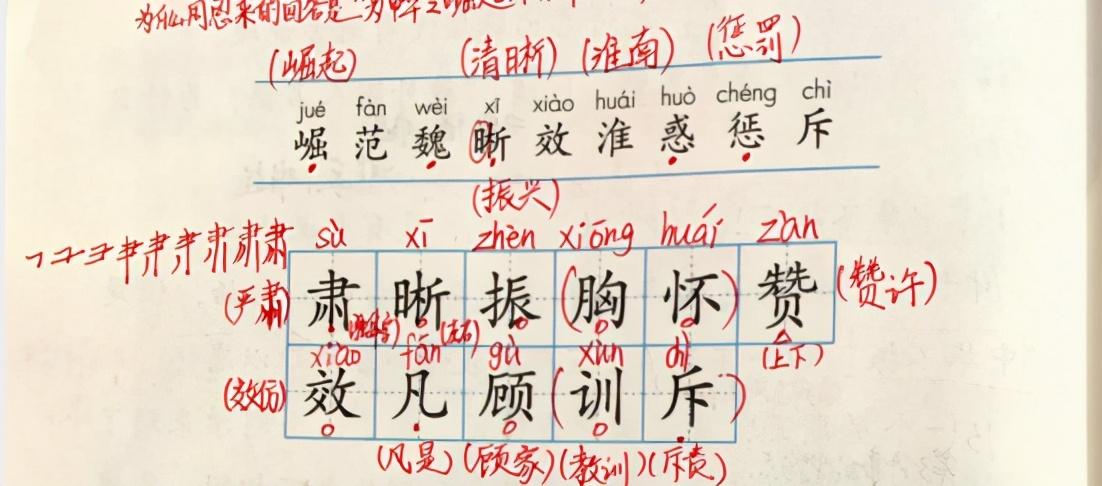 为什么周恩来的回答是"为中华之崛起
(崛起) (清晰) (淮南) (惩罚)
jué fàn wèi xī xiào huái huò chéng chì
崛 范 魏 晰 效 淮 惑 惩 斥
(振兴)
sù xī zhèn xiōng huái zàn
(严肃) 肃 晰 振 (胸 怀) 赞 (赞许)
(左右) (上下)
xiào fán gù xùn chì
(效仿) 效 凡 顾 (训 斥)
(凡是) (顾家) (教训) (斥责)